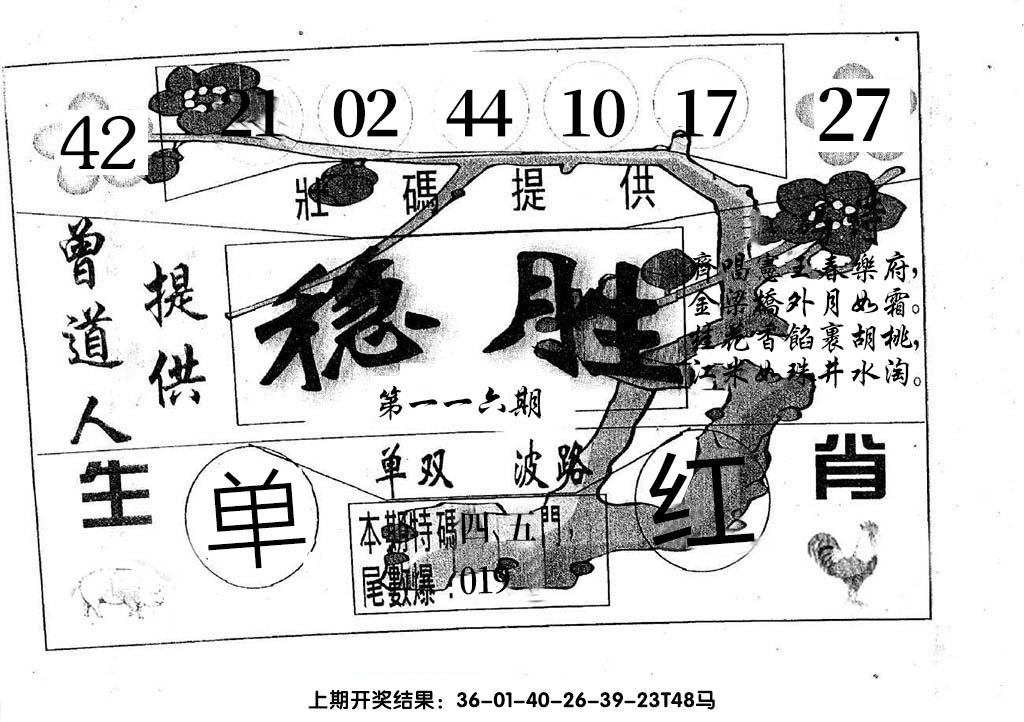 42 21 02 44 10 17 27
壯碼提供
特
曾道人
提供
稳胜
齊唱憲王春樂府，
金梁橋外月如霜。
桂花香餡裹胡桃，
江米如珠井水淘。
第一一六期
单双 波路
生 单 红 肖
本期特碼四、五門，
尾數爆：019
上期开奖结果：36-01-40-26-39-23T48马